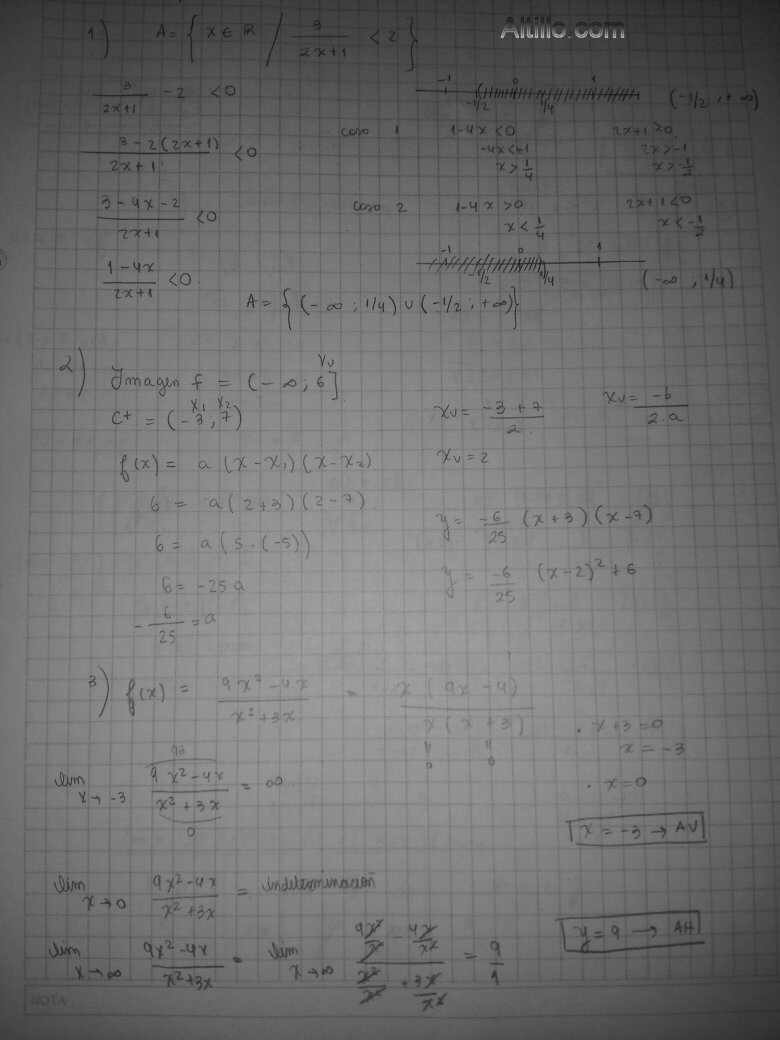 Altillo.com
1) A = { x ∈ R / 3/(2x+1) < 2 }
3/(2x+1) - 2 < 0
(3 - 2(2x+1))/(2x+1) < 0
(3 - 4x - 2)/(2x+1) < 0
(1 - 4x)/(2x+1) < 0
-1 0 1
-1/2 1/4 (-1/2 ; +∞)
caso 1 1-4x < 0 2x+1 > 0
-4x < -1 2x > -1
x > 1/4 x > -1/2
caso 2 1-4x > 0 2x+1 < 0
x < 1/4 x < -1/2
-1 0 1
-1/2 1/4 (-∞ ; 1/4)
A = { (-∞ ; 1/4) ∪ (-1/2 ; +∞) }
2) Imagen f = (-∞ ; 6]
Yv
C+ = (-3 ; 7)
x1 x2
f(x) = a (x - x1) (x - x2)
6 = a (2+3) (2-7)
6 = a (5 · (-5))
6 = -25 a
-6/25 = a
xv = (-3+7)/2 xv = -b/(2·a)
xv = 2
y = -6/25 (x+3) (x-7)
y = -6/25 (x-2)² + 6
3) f(x) = (9x² - 4x)/(x² + 3x) = x (9x - 4)/(x (x + 3))
0 0
· x+3 = 0
x = -3
· x = 0
lim x→-3 (9x² - 4x)/(x² + 3x) = ∞
93
0
x = -3 → AV
lim x→0 (9x² - 4x)/(x² + 3x) = indeterminación
lim x→∞ (9x² - 4x)/(x² + 3x) = lim x→∞ (9x²/x² - 4x/x²)/(x²/x² + 3x/x²) = 9/1
y = 9 → AH
NOTA